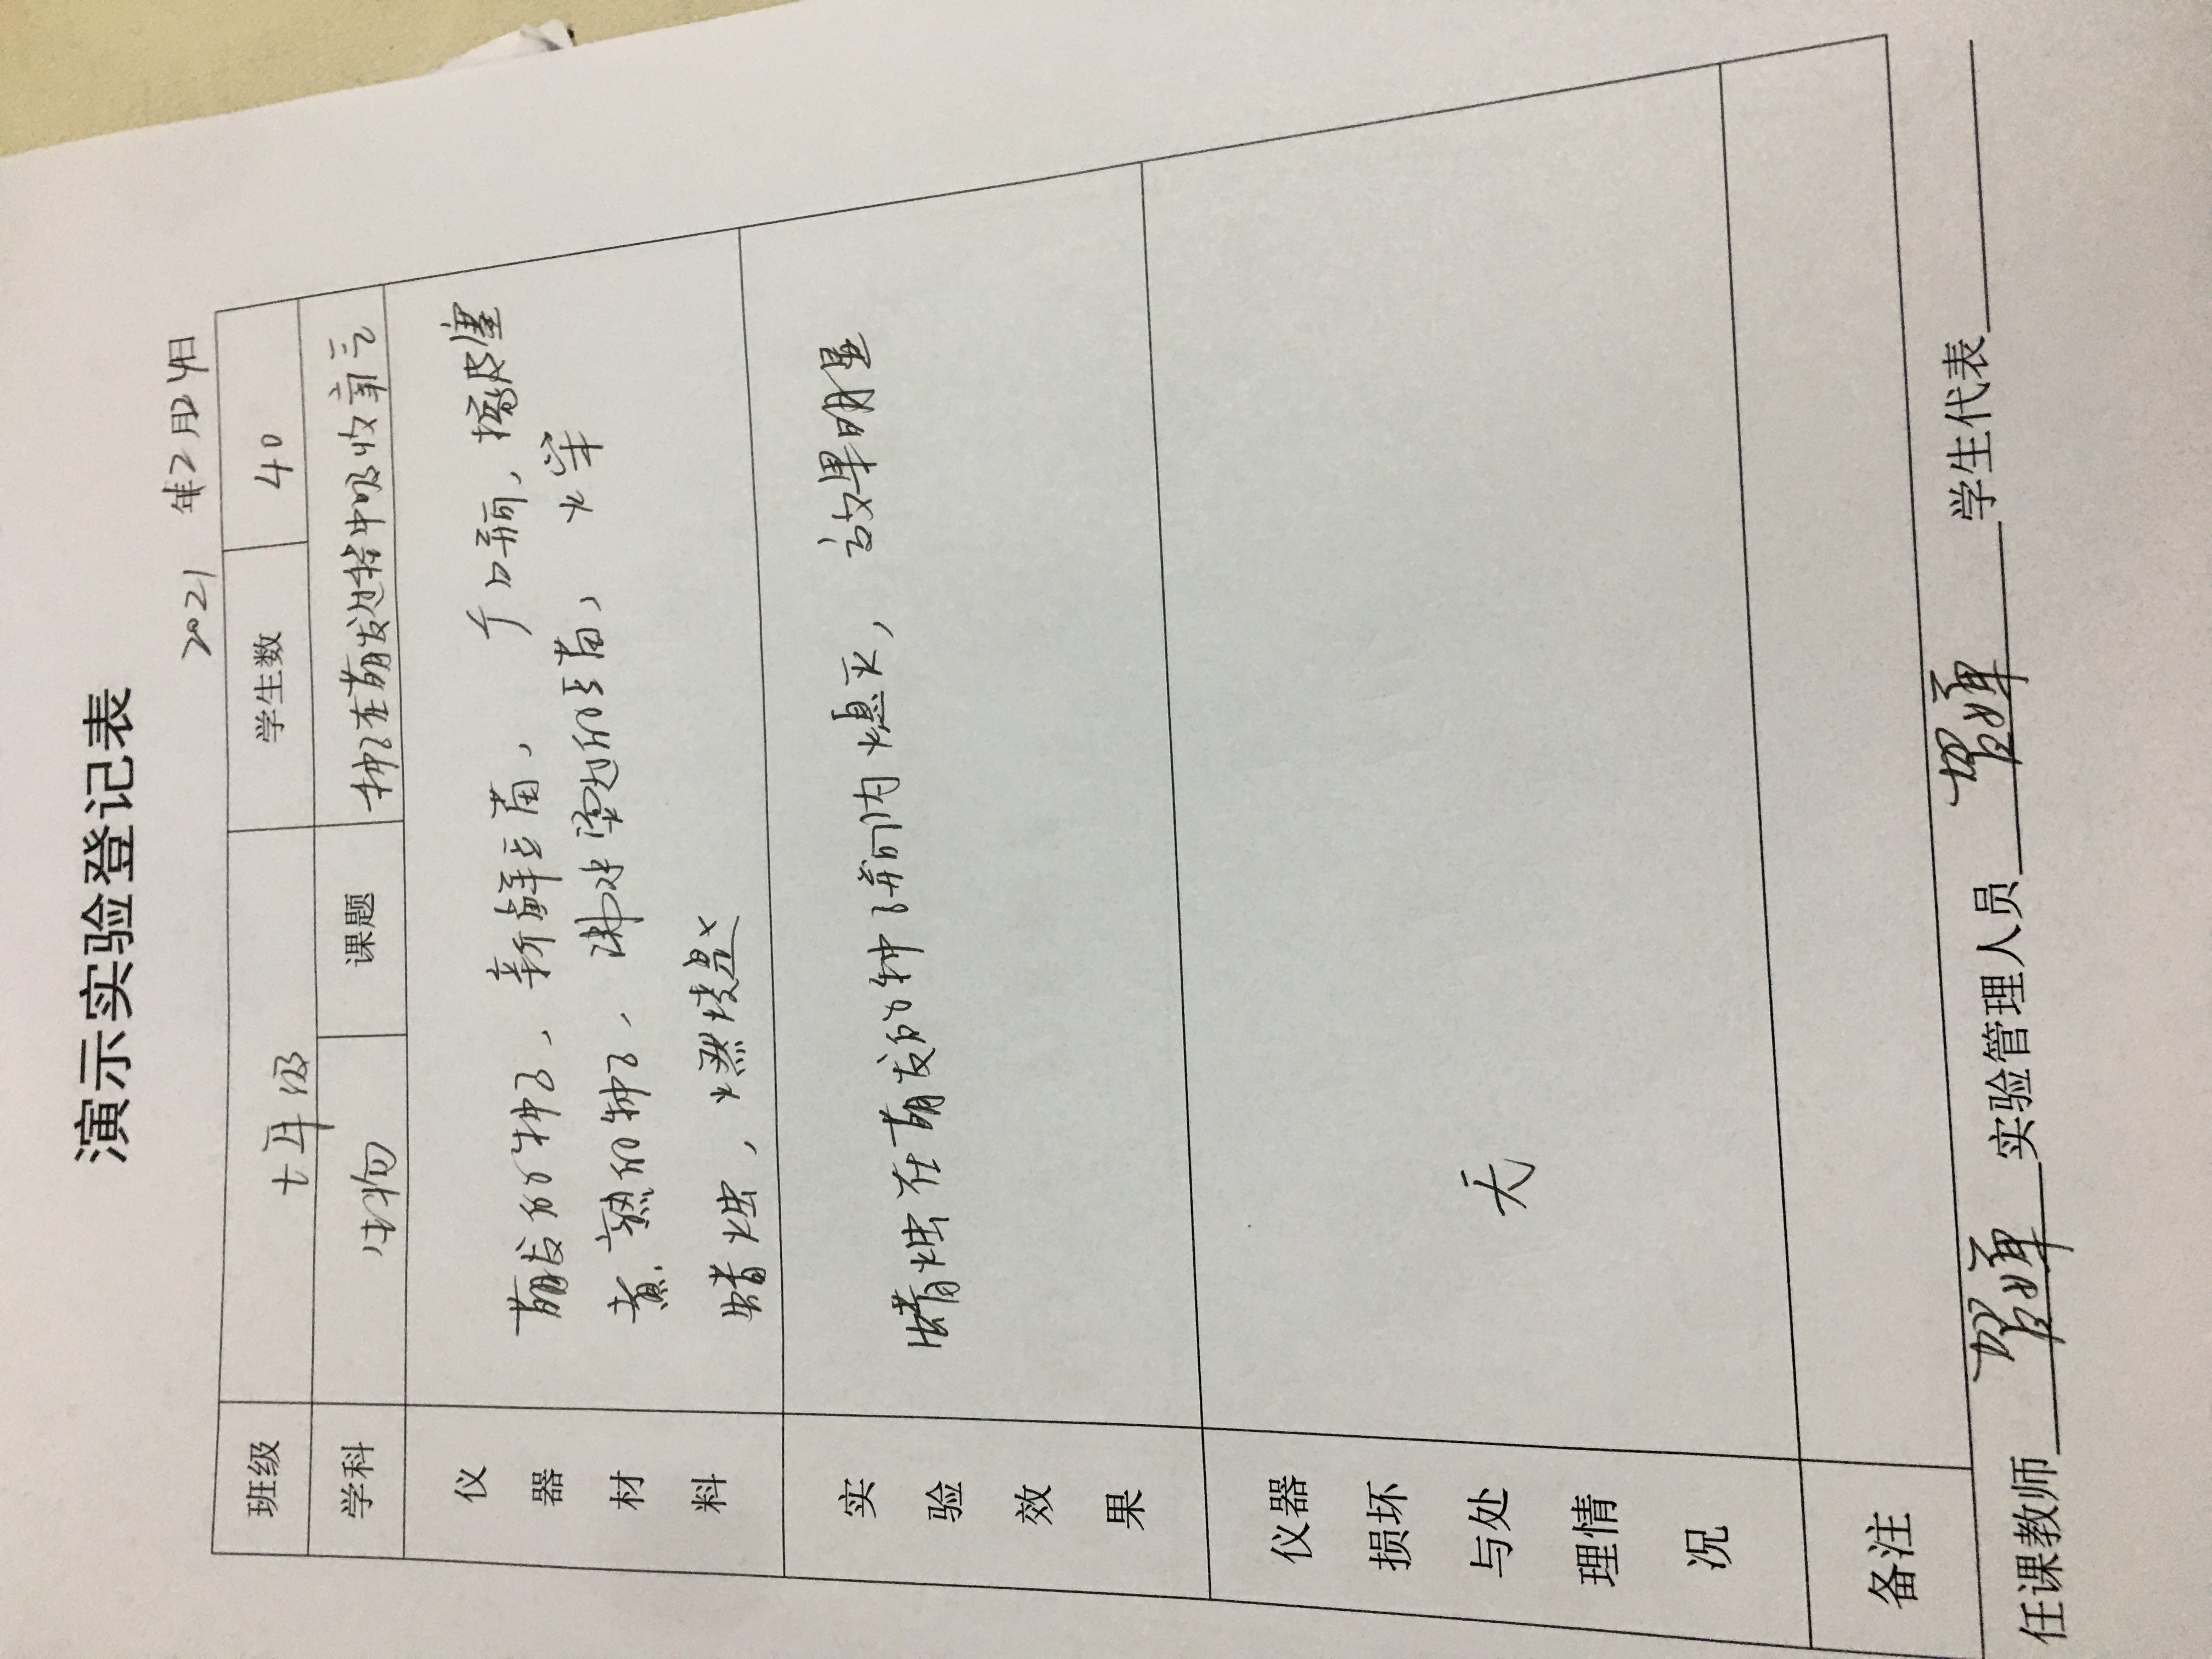 演示实验登记表
2021 年2月24日
班级 七年级 学生数 40
学科 生物 课题 种子在萌发过程中吸收氧气
仪器材料
萌发的种子、新鲜豆苗, 广口瓶、橡皮塞
煮熟的种子、沸水烫过的豆苗, 火柴
蜡烛、燃烧匙
实验效果
蜡烛在萌发的种子瓶内熄灭, 效果明显
仪器损坏与处理情况
无
备注
任课教师 实验管理人员 学生代表